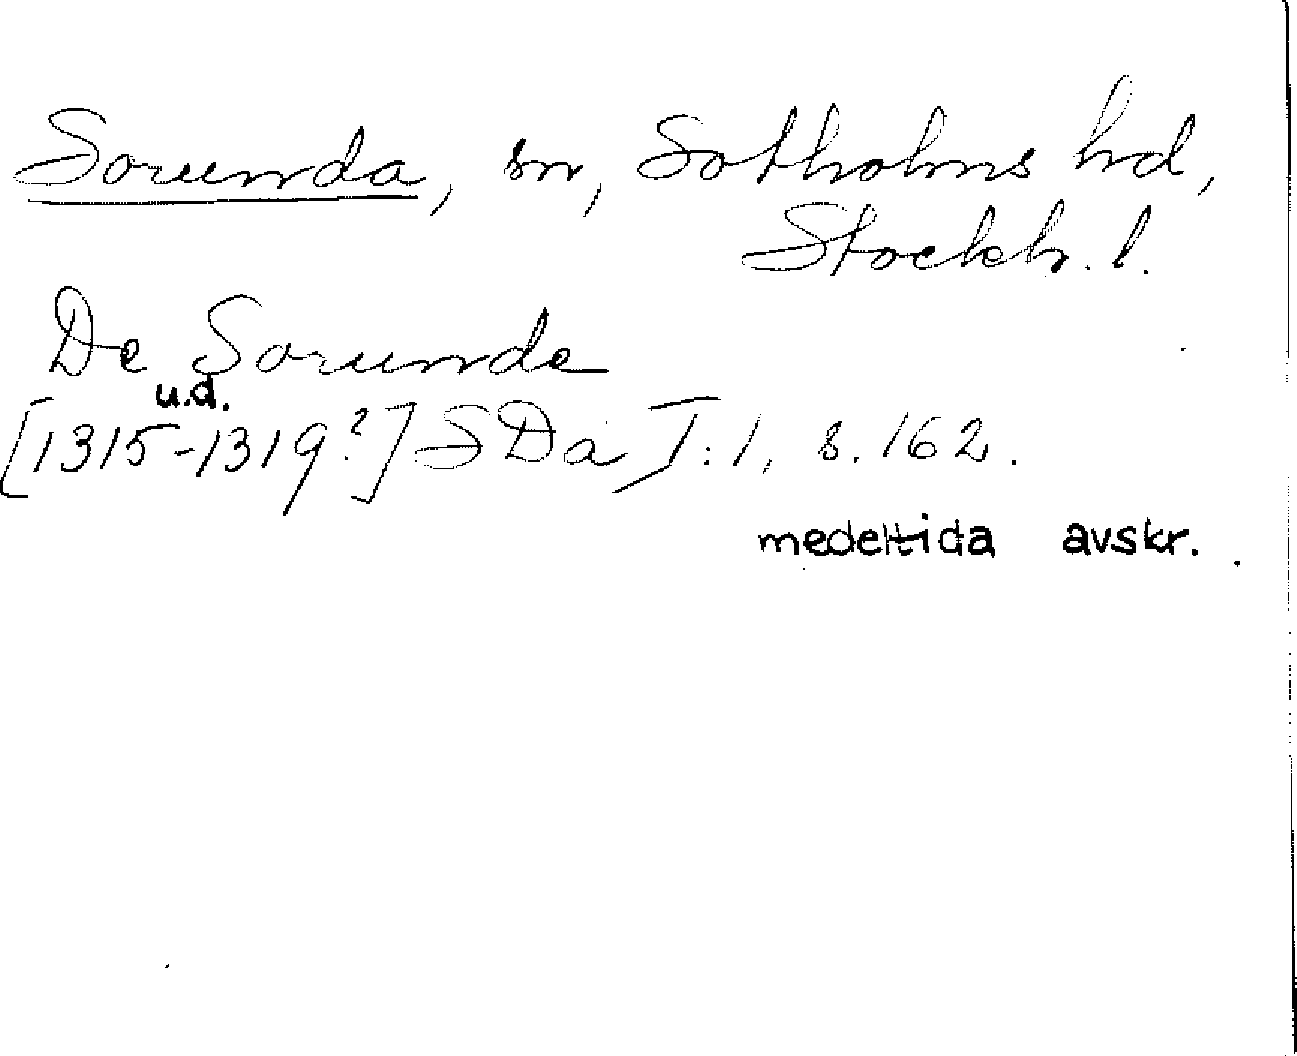 Sorunda, sn, Sotholms hd,
Stockh. l.
De Sorunde
u.d.
[1315-1319?] SDa I:1, s. 162.
medeltida avskr.